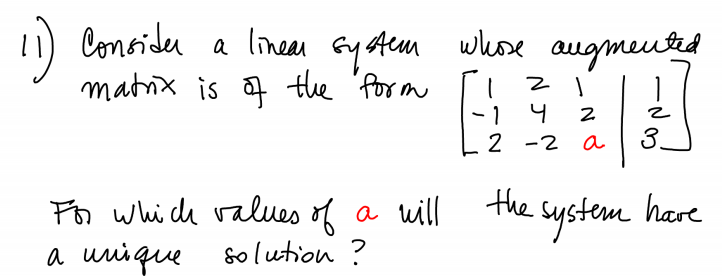 11) Consider a linear system whose augmented
matrix is of the form [ 1 2 1 | 1
-1 4 2 | 2
2 -2 a | 3 ]
For which values of a will the system have
a unique solution?